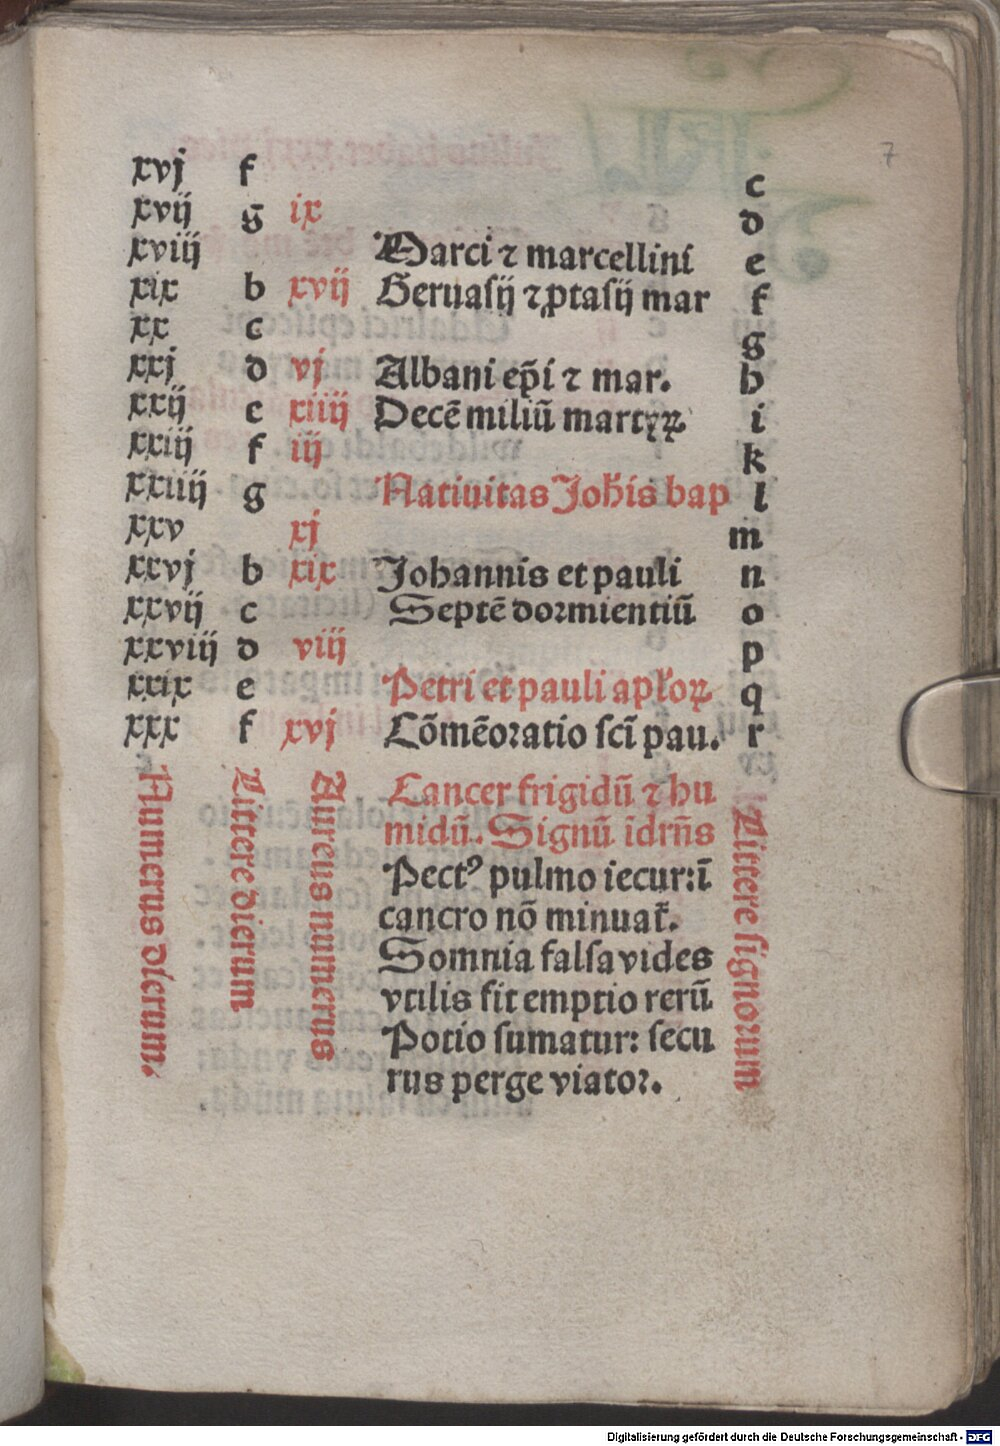 7
xvj f c
xvij g ix d
xviij Marci ⁊ marcellini e
xix b xvij Geruasij ⁊ ꝓtasij mar f
xx c g
xxj d vj Albani ep̃i ⁊ mar. h
xxij e xiiij Decē miliū martyꝝ. i
xxiij f iij k
xxiiij g Natiuitas Joh̄is bap l
xxv xj m
xxvj b xix Johannis et pauli n
xxvij c Septē dormientiū o
xxviij d viij p
xxix e Petri et pauli apƚoꝝ q
xxx f xvj Cōmēoratio scī pau. r
Numerus dierum.
Littere dierum
Aureus numerus
Cancer frigidū ⁊ hu
midū. Signū īdrn̄s
Pectꝰ pulmo iecur: ī
cancro nō minuat̄.
Somnia falsa vides
vtilis fit emptio rerū
Potio sumatur: secu
rus perge viator.
Littere signorum
Digitalisierung gefördert durch die Deutsche Forschungsgemeinschaft - DFG